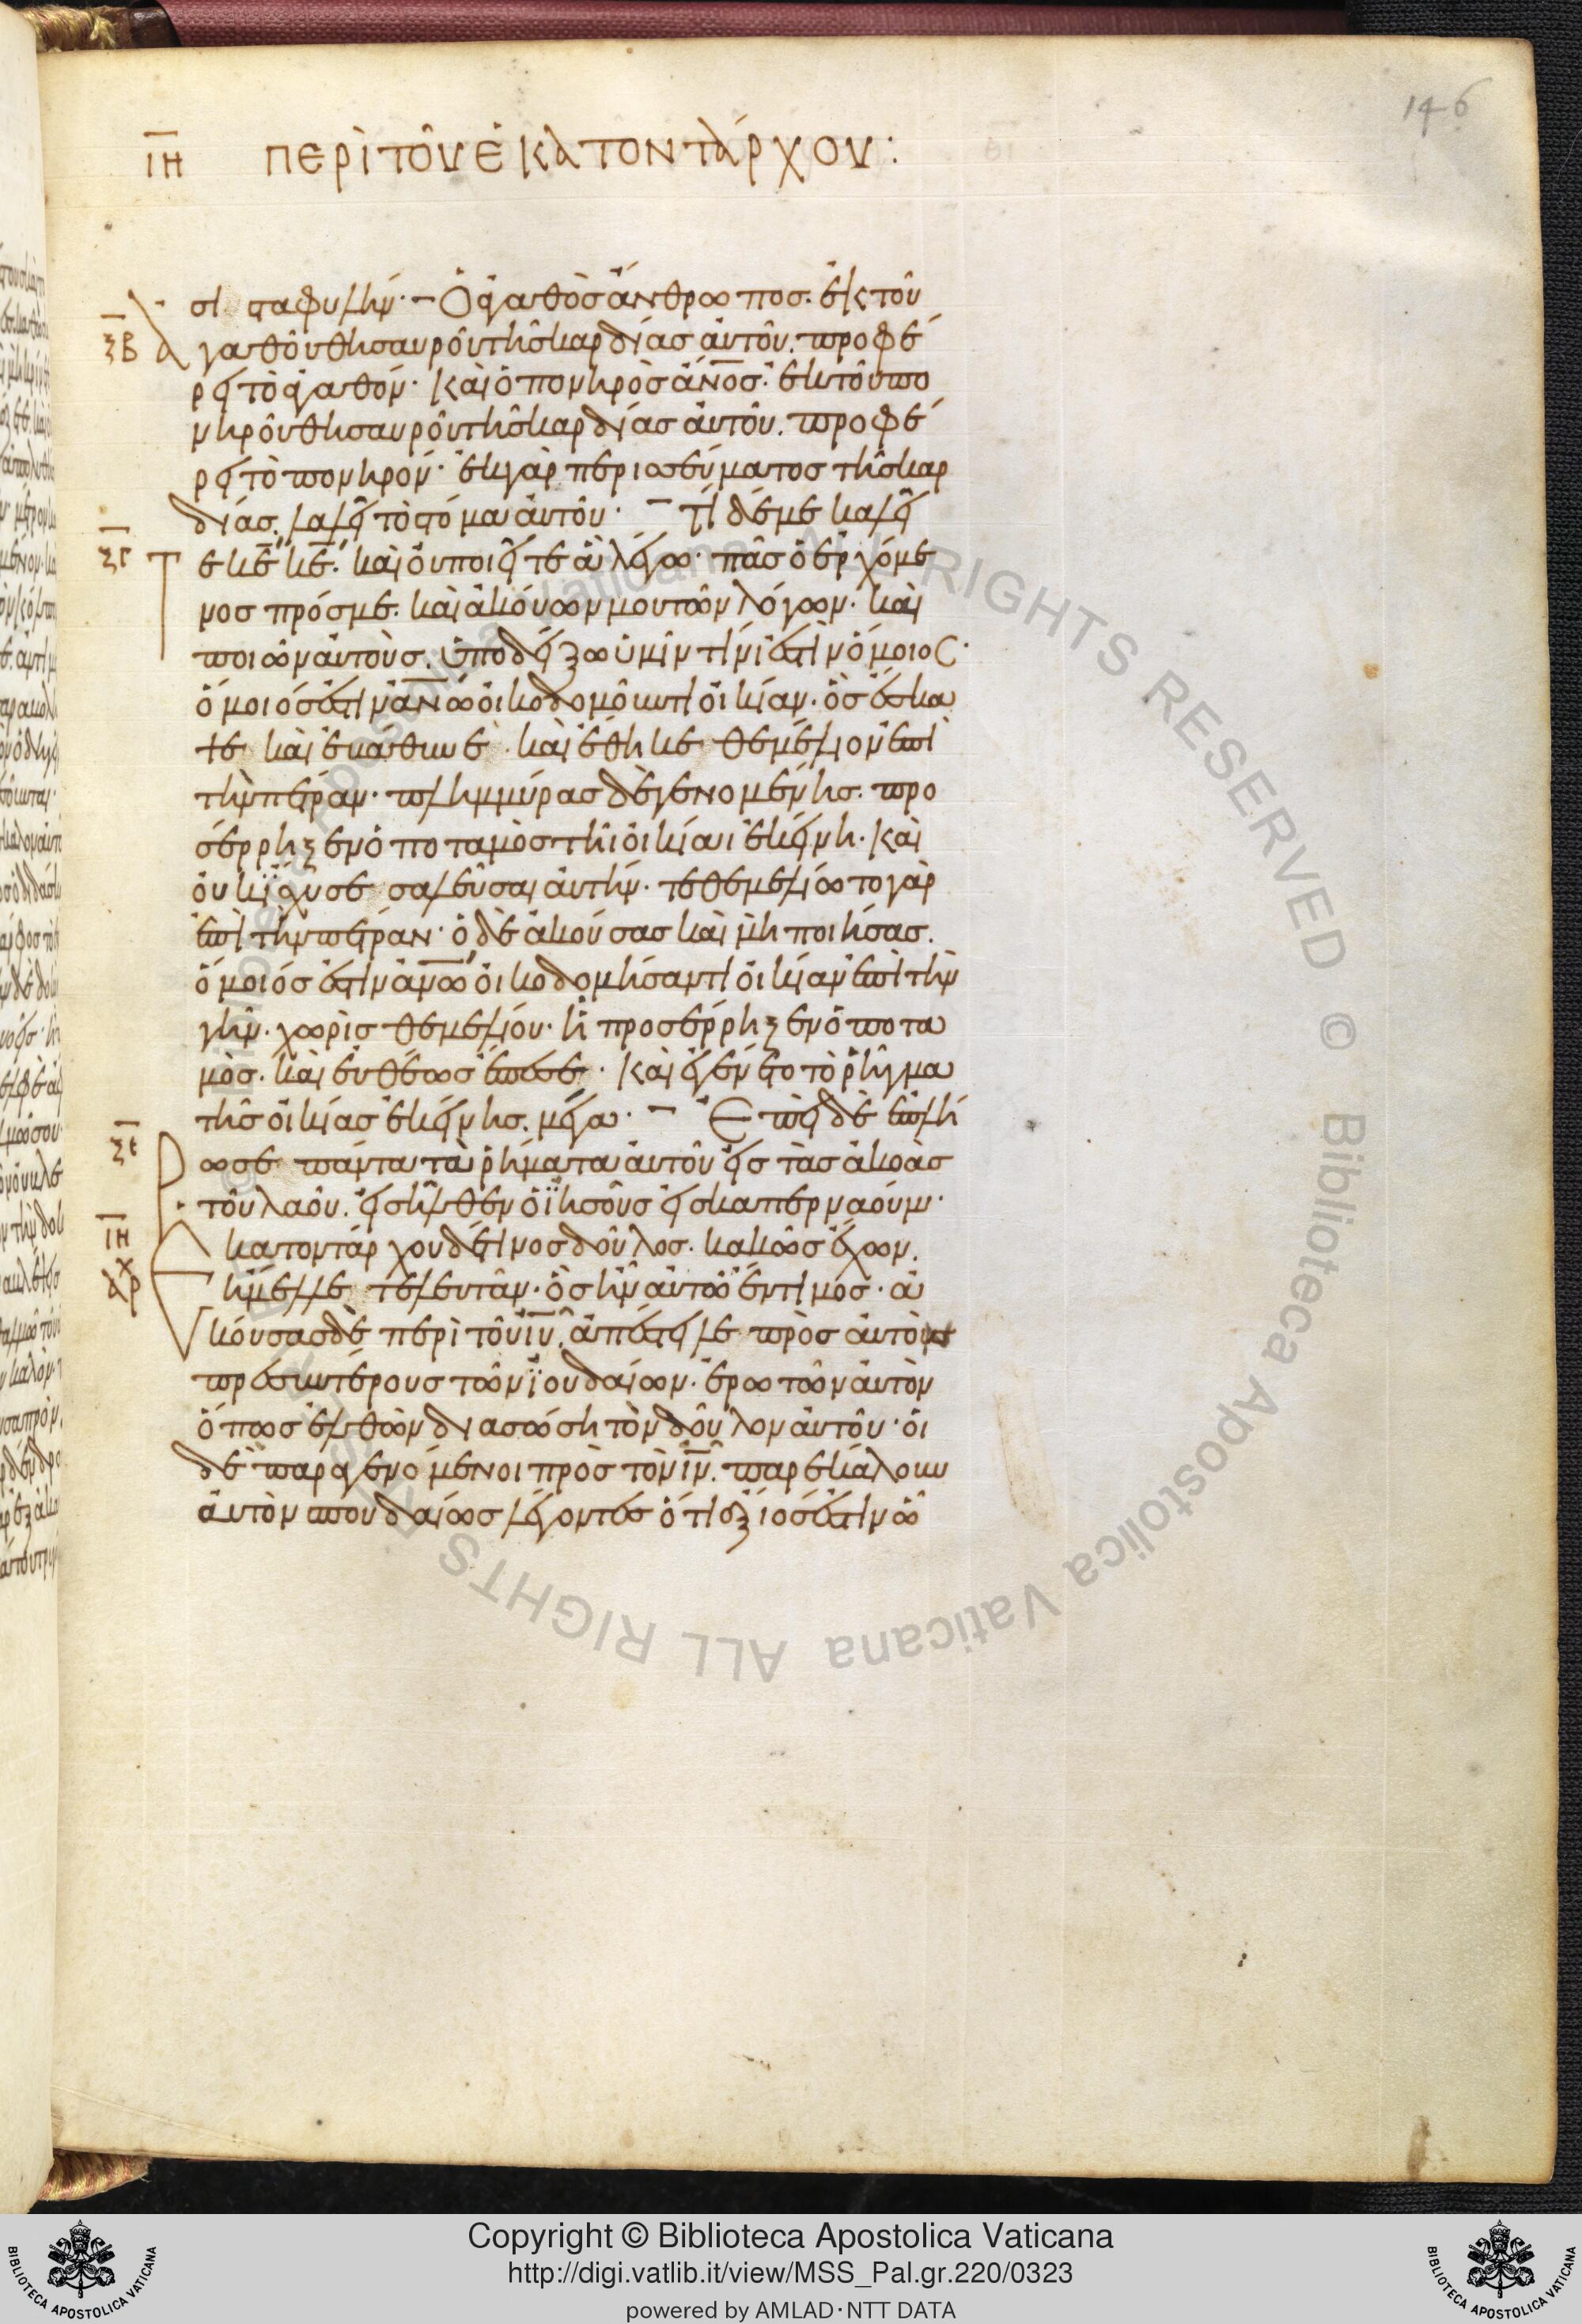 146
ιη περὶ τοῦ ἑκατοντάρχου:
σι σταφυλήν· — Ὁ ἀγαθὸσ ἄνθρωποσ. ἐκ τοῦ
ξβ ἀγαθοῦ θησαυροῦ τῆσ καρδίασ αὐτοῦ. προφέ
ρει τὸ ἀγαθόν· καὶ ὁ πονηρὸσ ἄνοσ. ἐκ τοῦ πο
νηροῦ θησαυροῦ τῆσ καρδίασ αὐτοῦ. προφέ
ρει τὸ πονηρόν· ἐκ γὰρ περισσεύματοσ τῆσ καρ
δίασ. λαλεῖ τὸ στόμα αὐτοῦ· — τί δέ με καλεῖ
ξγ τε κε κε. καὶ οὐ ποιεῖτε ἃ λέγω· πᾶσ ὁ ἐρχόμε
νοσ πρόσ με. καὶ ἀκούων μου τῶν λόγων. καὶ
ποιῶν αὐτοὺσ. ὑποδείξω ὑμῖν τίνι ἐστὶν ὅμοιοσ·
ὅμοιόσ ἐστιν ἀνω οἰκοδομοῦντι οἰκίαν. ὃσ ἔσκα
ψε καὶ ἐβάθυνε. καὶ ἔθηκε θεμέλιον ἐπὶ
τὴν πέτραν· πλημμύρασ δὲ γενομένησ. προ
σέρρηξεν ὁ ποταμὸσ τῆι οἰκίαι ἐκείνη. καὶ
οὐκ ἴσχυσε σαλεῦσαι αὐτήν· τεθεμελίωτο γὰρ
ἐπὶ τὴν πέτραν· ὁ δὲ ἀκούσασ καὶ μὴ ποιήσασ.
ὅμοιόσ ἐστιν ἀνω οἰκοδομήσαντι οἰκίαν ἐπὶ τὴν
γῆν. χωρὶσ θεμελίου· ἧ προσέρρηξεν ὁ ποτα
μόσ. καὶ εὐθέωσ ἔπεσε· καὶ ἐγένετο τὸ ῥῆγμα
τῆσ οἰκίασ ἐκείνησ. μέγα· — Ἐπεὶ δὲ ἐπλή
ξε ρωσε πάντα τὰ ῥήματα αὐτοῦ εἰσ τὰσ ἀκοὰσ
τοῦ λαοῦ. εἰσῆλθεν ὁ ἰησοῦσ εἰσ καπερναούμ·
ιη ἑκατοντάρχου δέ τινοσ δοῦλοσ. κακῶσ ἔχων.
αρχ ἤμελλε τελευτᾶν· ὃσ ἦν αὐτῶ ἔντιμοσ· ἀ
κούσασ δὲ περὶ τοῦ ιυ. ἀπέστειλε πρὸσ αὐτὸν
πρεσβυτέρουσ τῶν ἰουδαίων. ἐρωτῶν αὐτὸν
ὅπωσ ἐλθὼν διασώση τὸν δοῦλον αὐτοῦ· οἱ
δὲ παραγενόμενοι πρὸσ τὸν ιν. παρεκάλουν
αὐτὸν σπουδαίωσ λέγοντεσ ὅτι ἄξιόσ ἐστιν ὧ
Copyright © Biblioteca Apostolica Vaticana
http://digi.vatlib.it/view/MSS_Pal.gr.220/0323
powered by AMLAD·NTT DATA